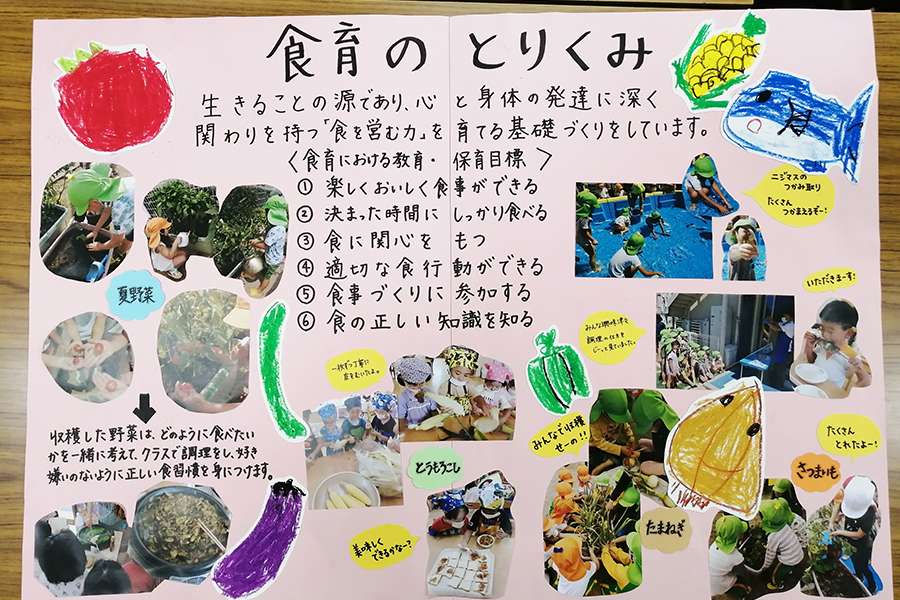 食育のとりくみ
生きることの源であり、心と身体の発達に深く
関わりを持つ「食を営む力」を育てる基礎づくりをしています。
〈食育における教育・保育目標〉
① 楽しくおいしく食事ができる
② 決まった時間にしっかり食べる
③ 食に関心をもつ
④ 適切な食行動ができる
⑤ 食事づくりに参加する
⑥ 食の正しい知識を知る
ニジマスの
つかみ取り
たくさん
つかまえるぞー!
いただきまーす!
夏野菜
みんな興味津々
調理の仕方を
じーっと見ていました。
一枚ずつ丁寧に
皮をむいたよ。
収穫した野菜は、どのように食べたい
かを一緒に考えて、クラスで調理をし、好き
嫌いのないように正しい食習慣を身につけます。
とうもろこし
みんなで収穫
せーの!!
たくさん
とれたよー!
さつまいも
たまねぎ
美味しく
できるかなー?